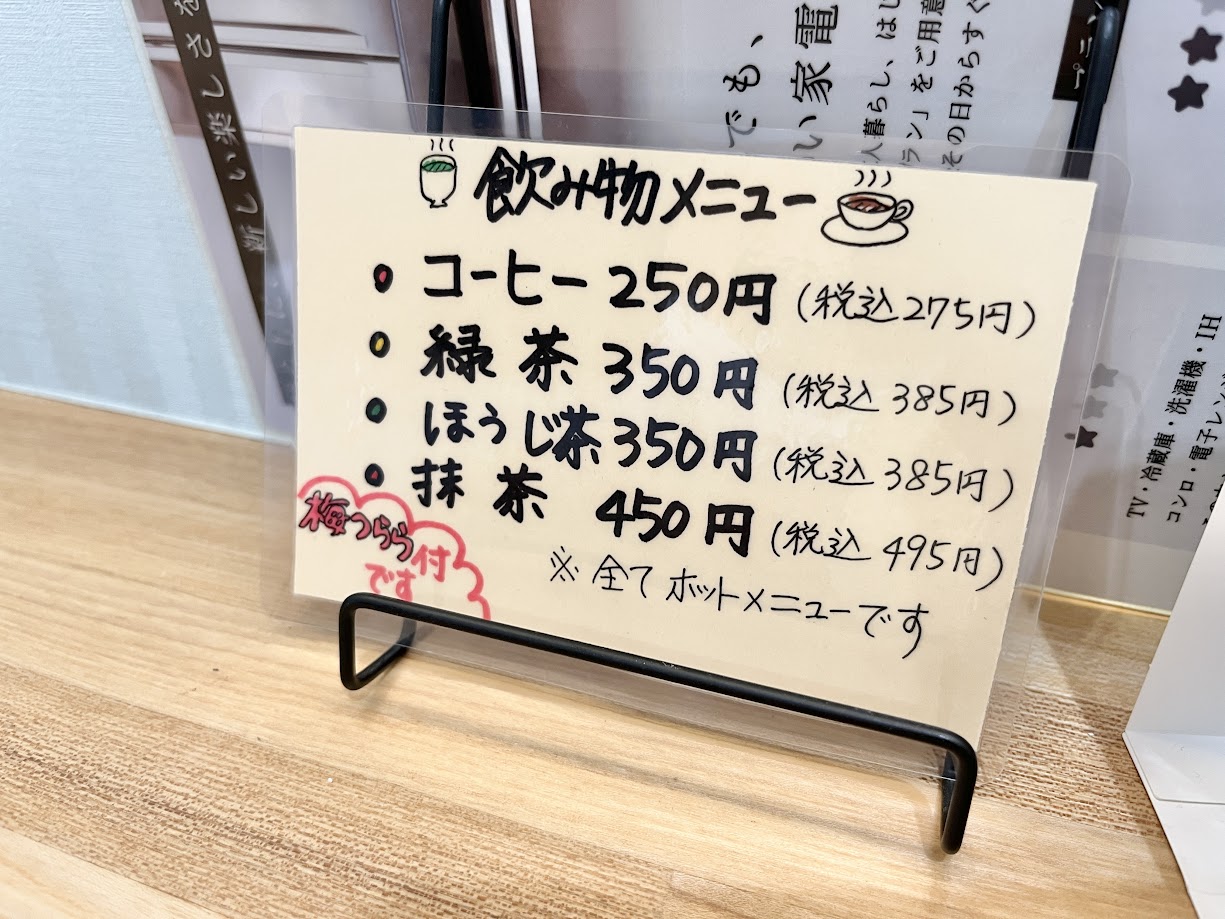 飲み物メニュー
コーヒー 250円 (税込 275円)
緑茶 350円 (税込 385円)
ほうじ茶 350円 (税込 385円)
抹茶 450円 (税込 495円)
※ 全て ホットメニューです
梅つらら
付
です
新しい楽しさを
でも、
い家電
人暮らし、はじ
ラン」をご用意
その日からすぐ
TV・冷蔵庫・洗濯機・IH
コンロ・電子レンジ